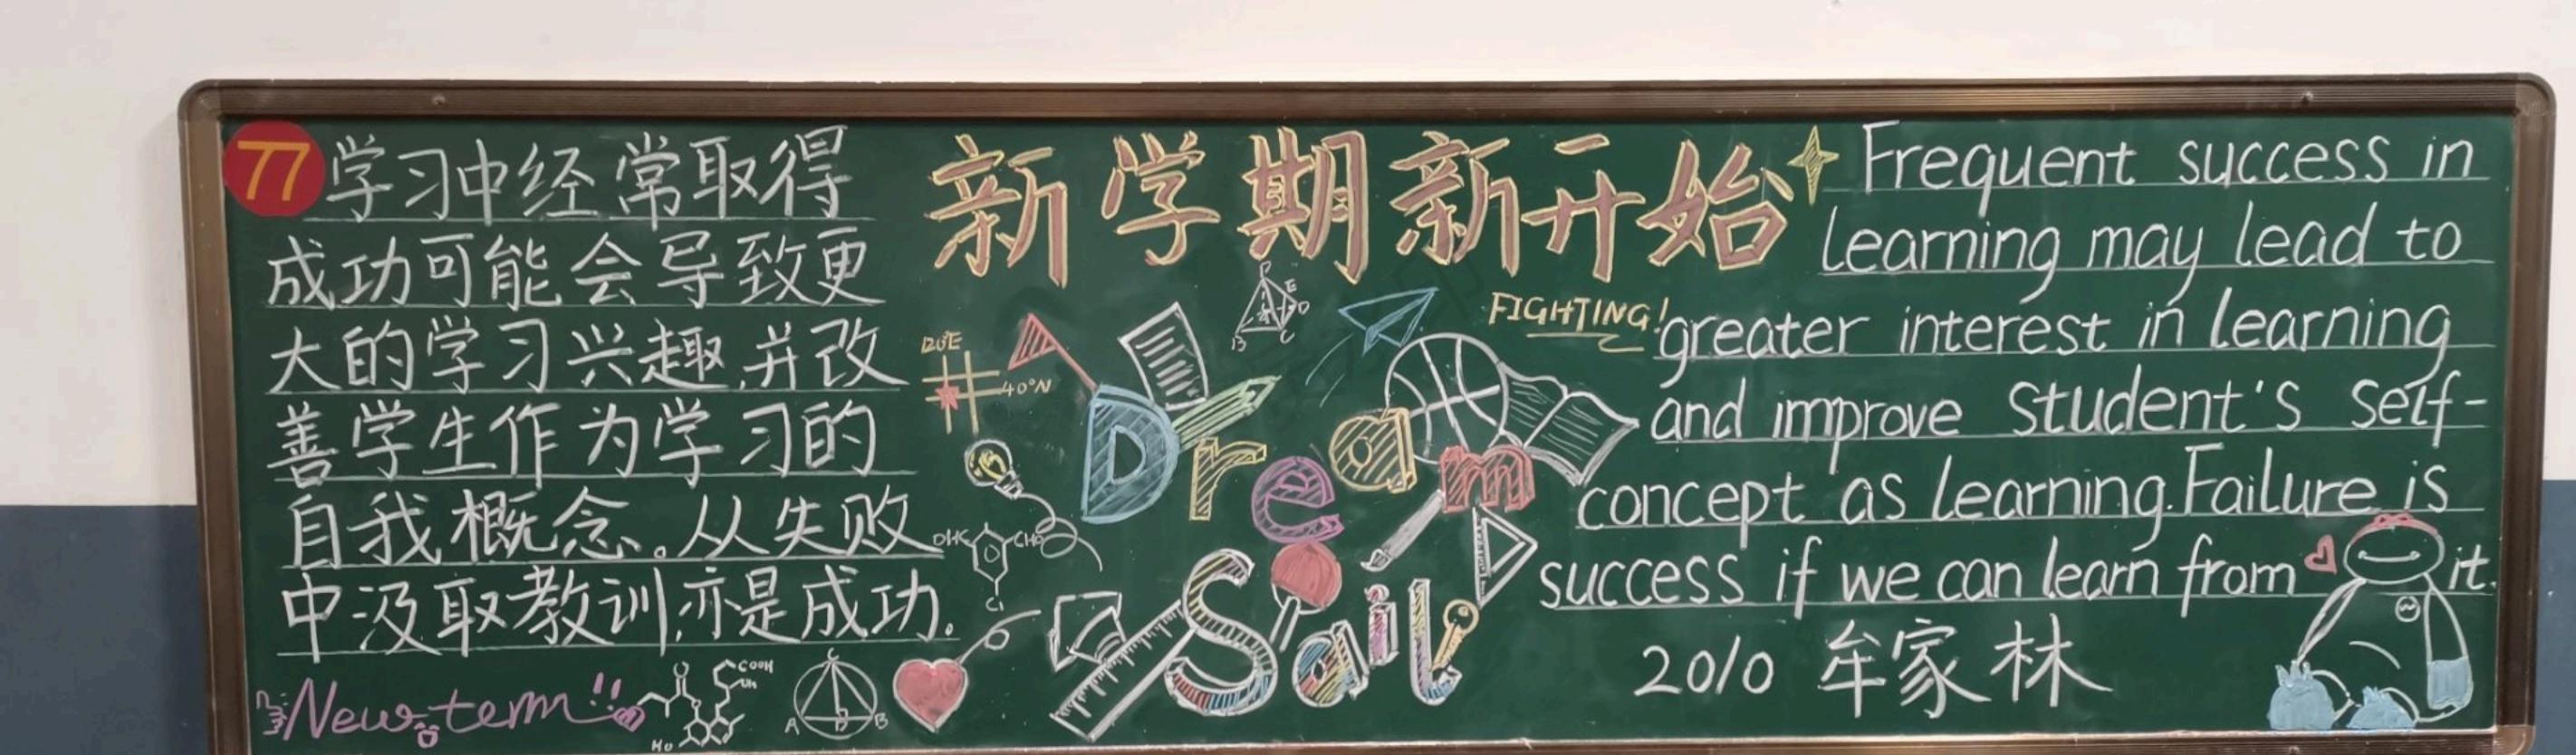 77
学习中经常取得
成功可能会导致更
大的学习兴趣,并改
善学生作为学习的
自我概念。从失败
中汲取教训,亦是成功。
New term!!
HO
COOH
OH
C
A D B
新学期新开始
FIGHTING!
120°E
40°N
E
D
B C
Dream
OHC
CHO
Cl
Sail
Frequent success in
learning may lead to
greater interest in learning
and improve student's self-
concept as learning.Failure is
success if we can learn from it.
2010 牟家林